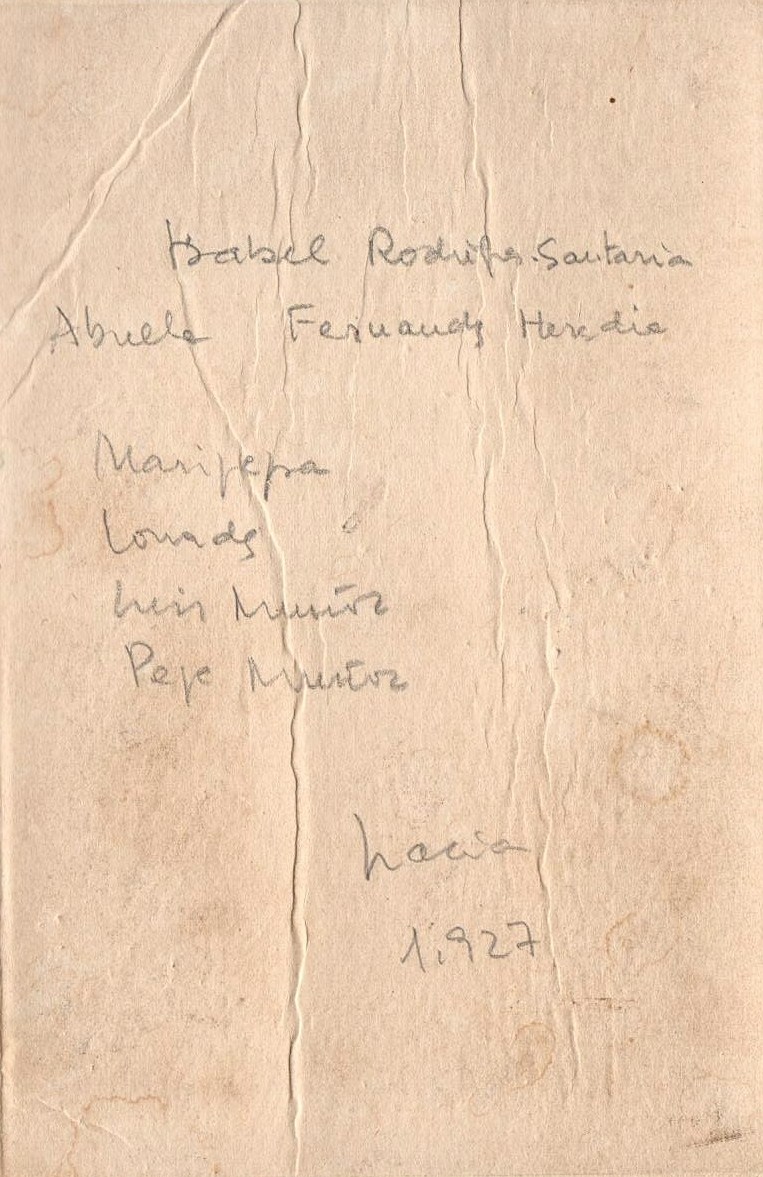 Isabel Rodrígez-Santaria
Abuela Fernandz Heredia
Maripepa
Lourdes
Luis Muñoz
Pepe Muñoz
hacia
1.927